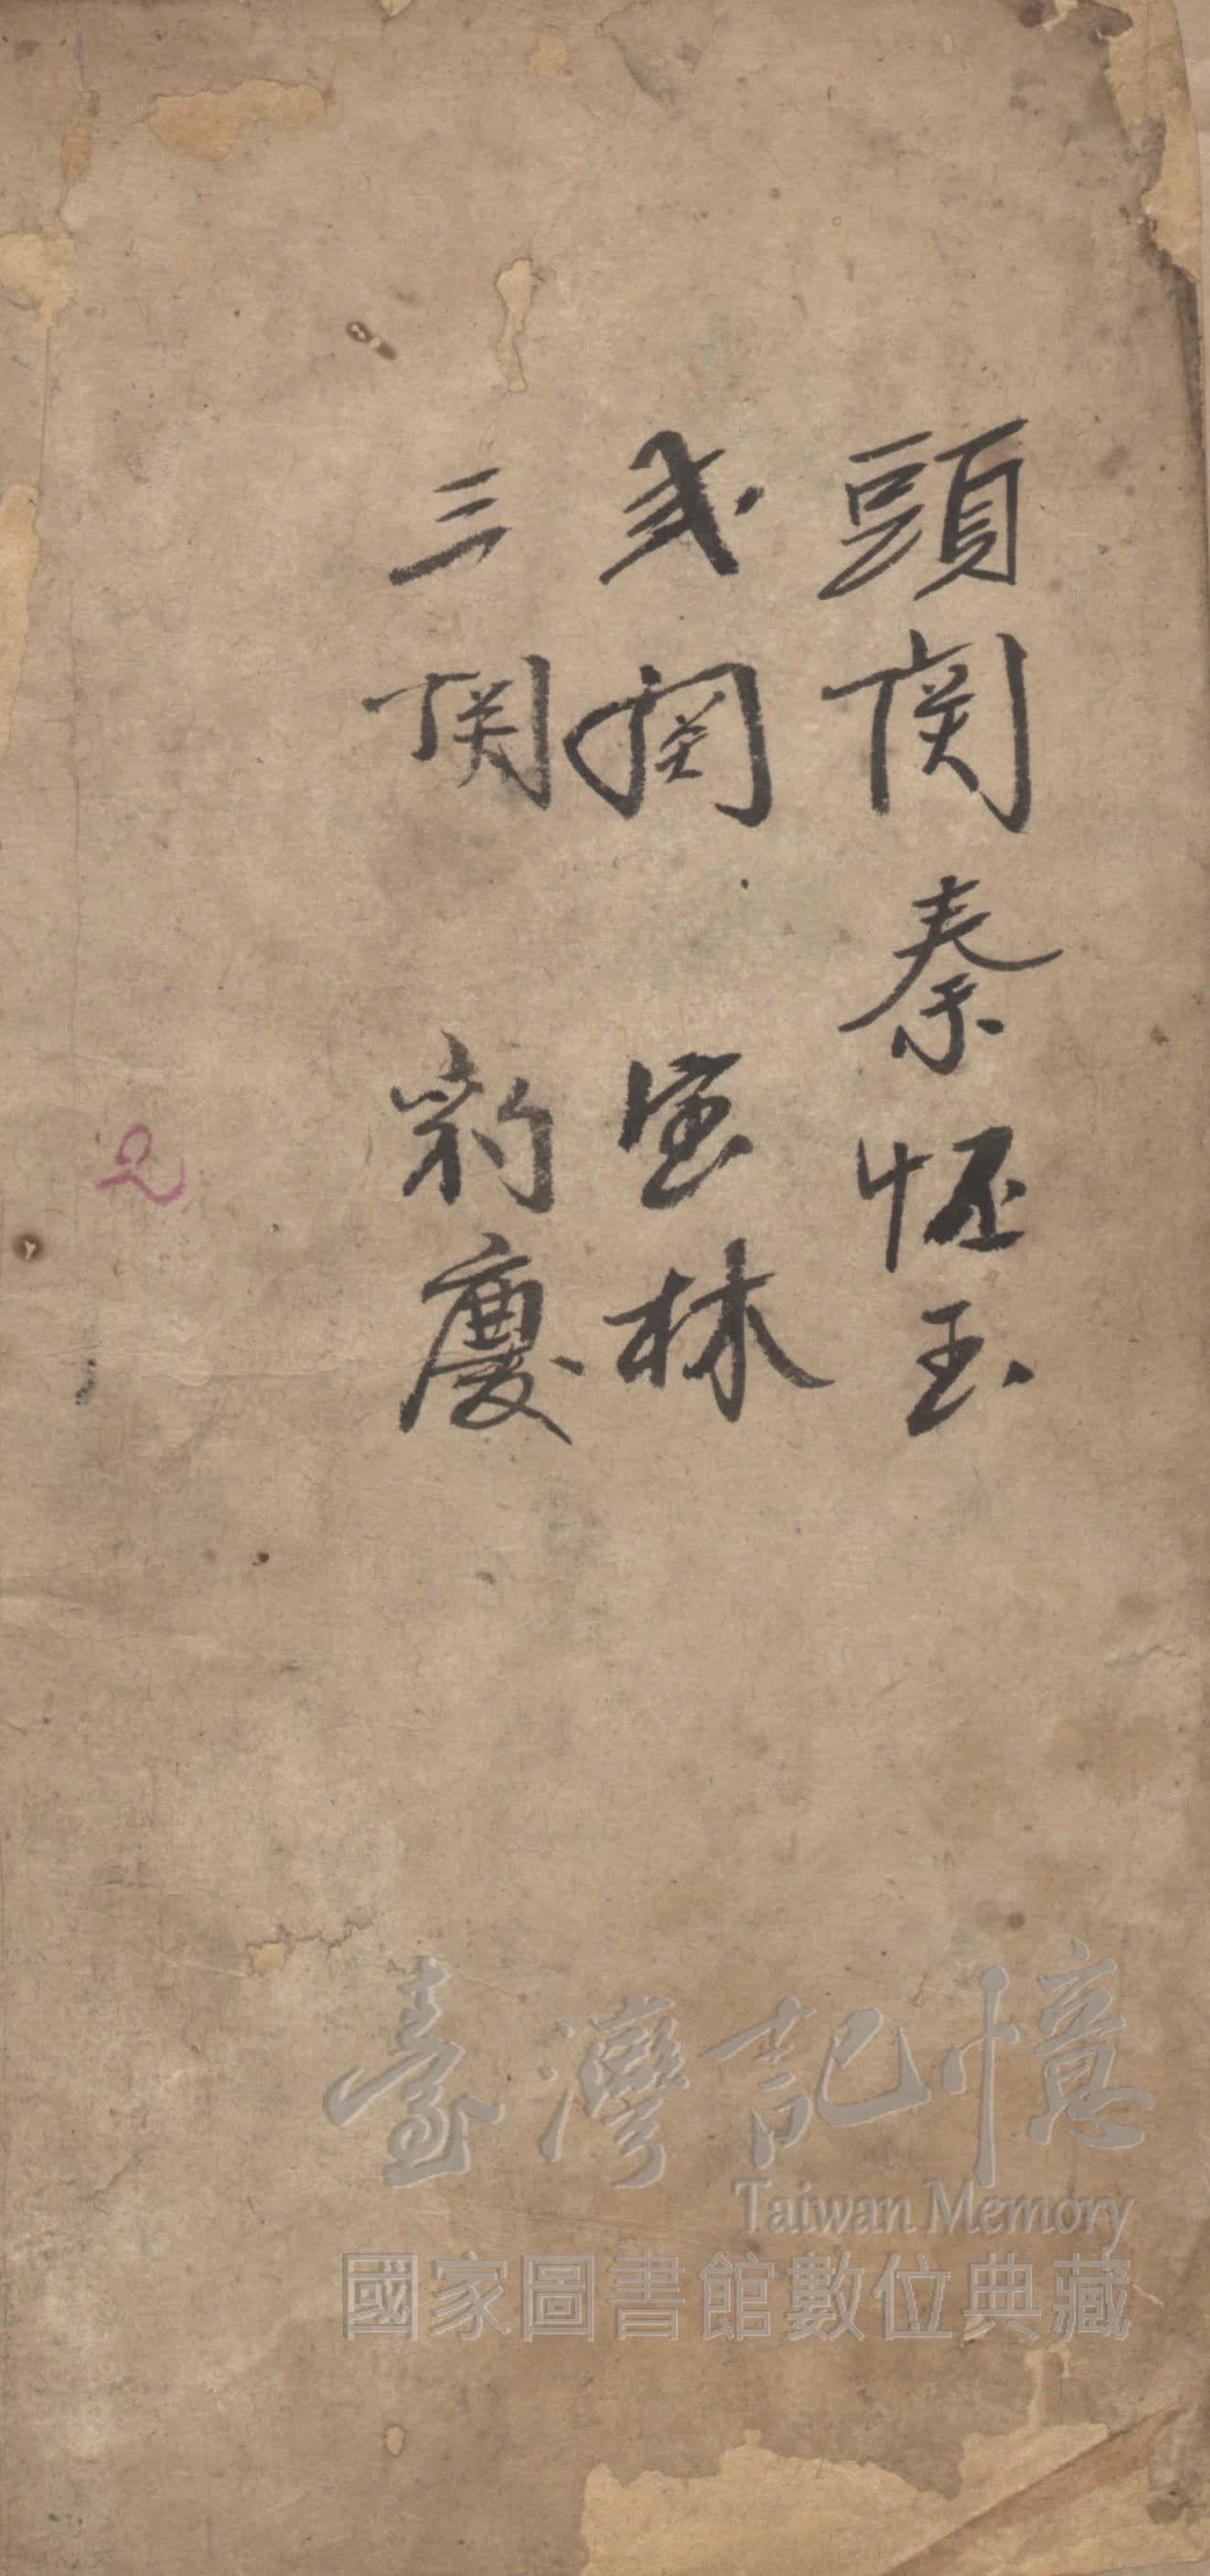 頭関秦恆玉
弍関 宝林
三関 豹慶
2
臺灣記憶
Taiwan Memory
國家圖書館數位典藏